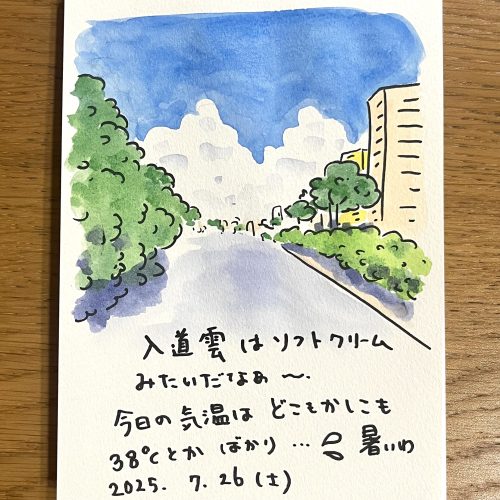 入道雲はソフトクリーム
みたいだなぁ〜.
今日の気温は どこもかしこも
38℃とか ばかり … 暑いわ
2025. 7. 26 (土)